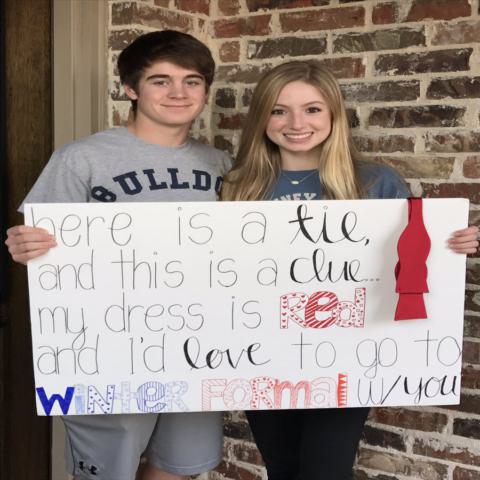 BULLDO
here is a tie,
and this is a clue...
my dress is Red
and I'd love to go to
WINTER FORMAL w/YOU